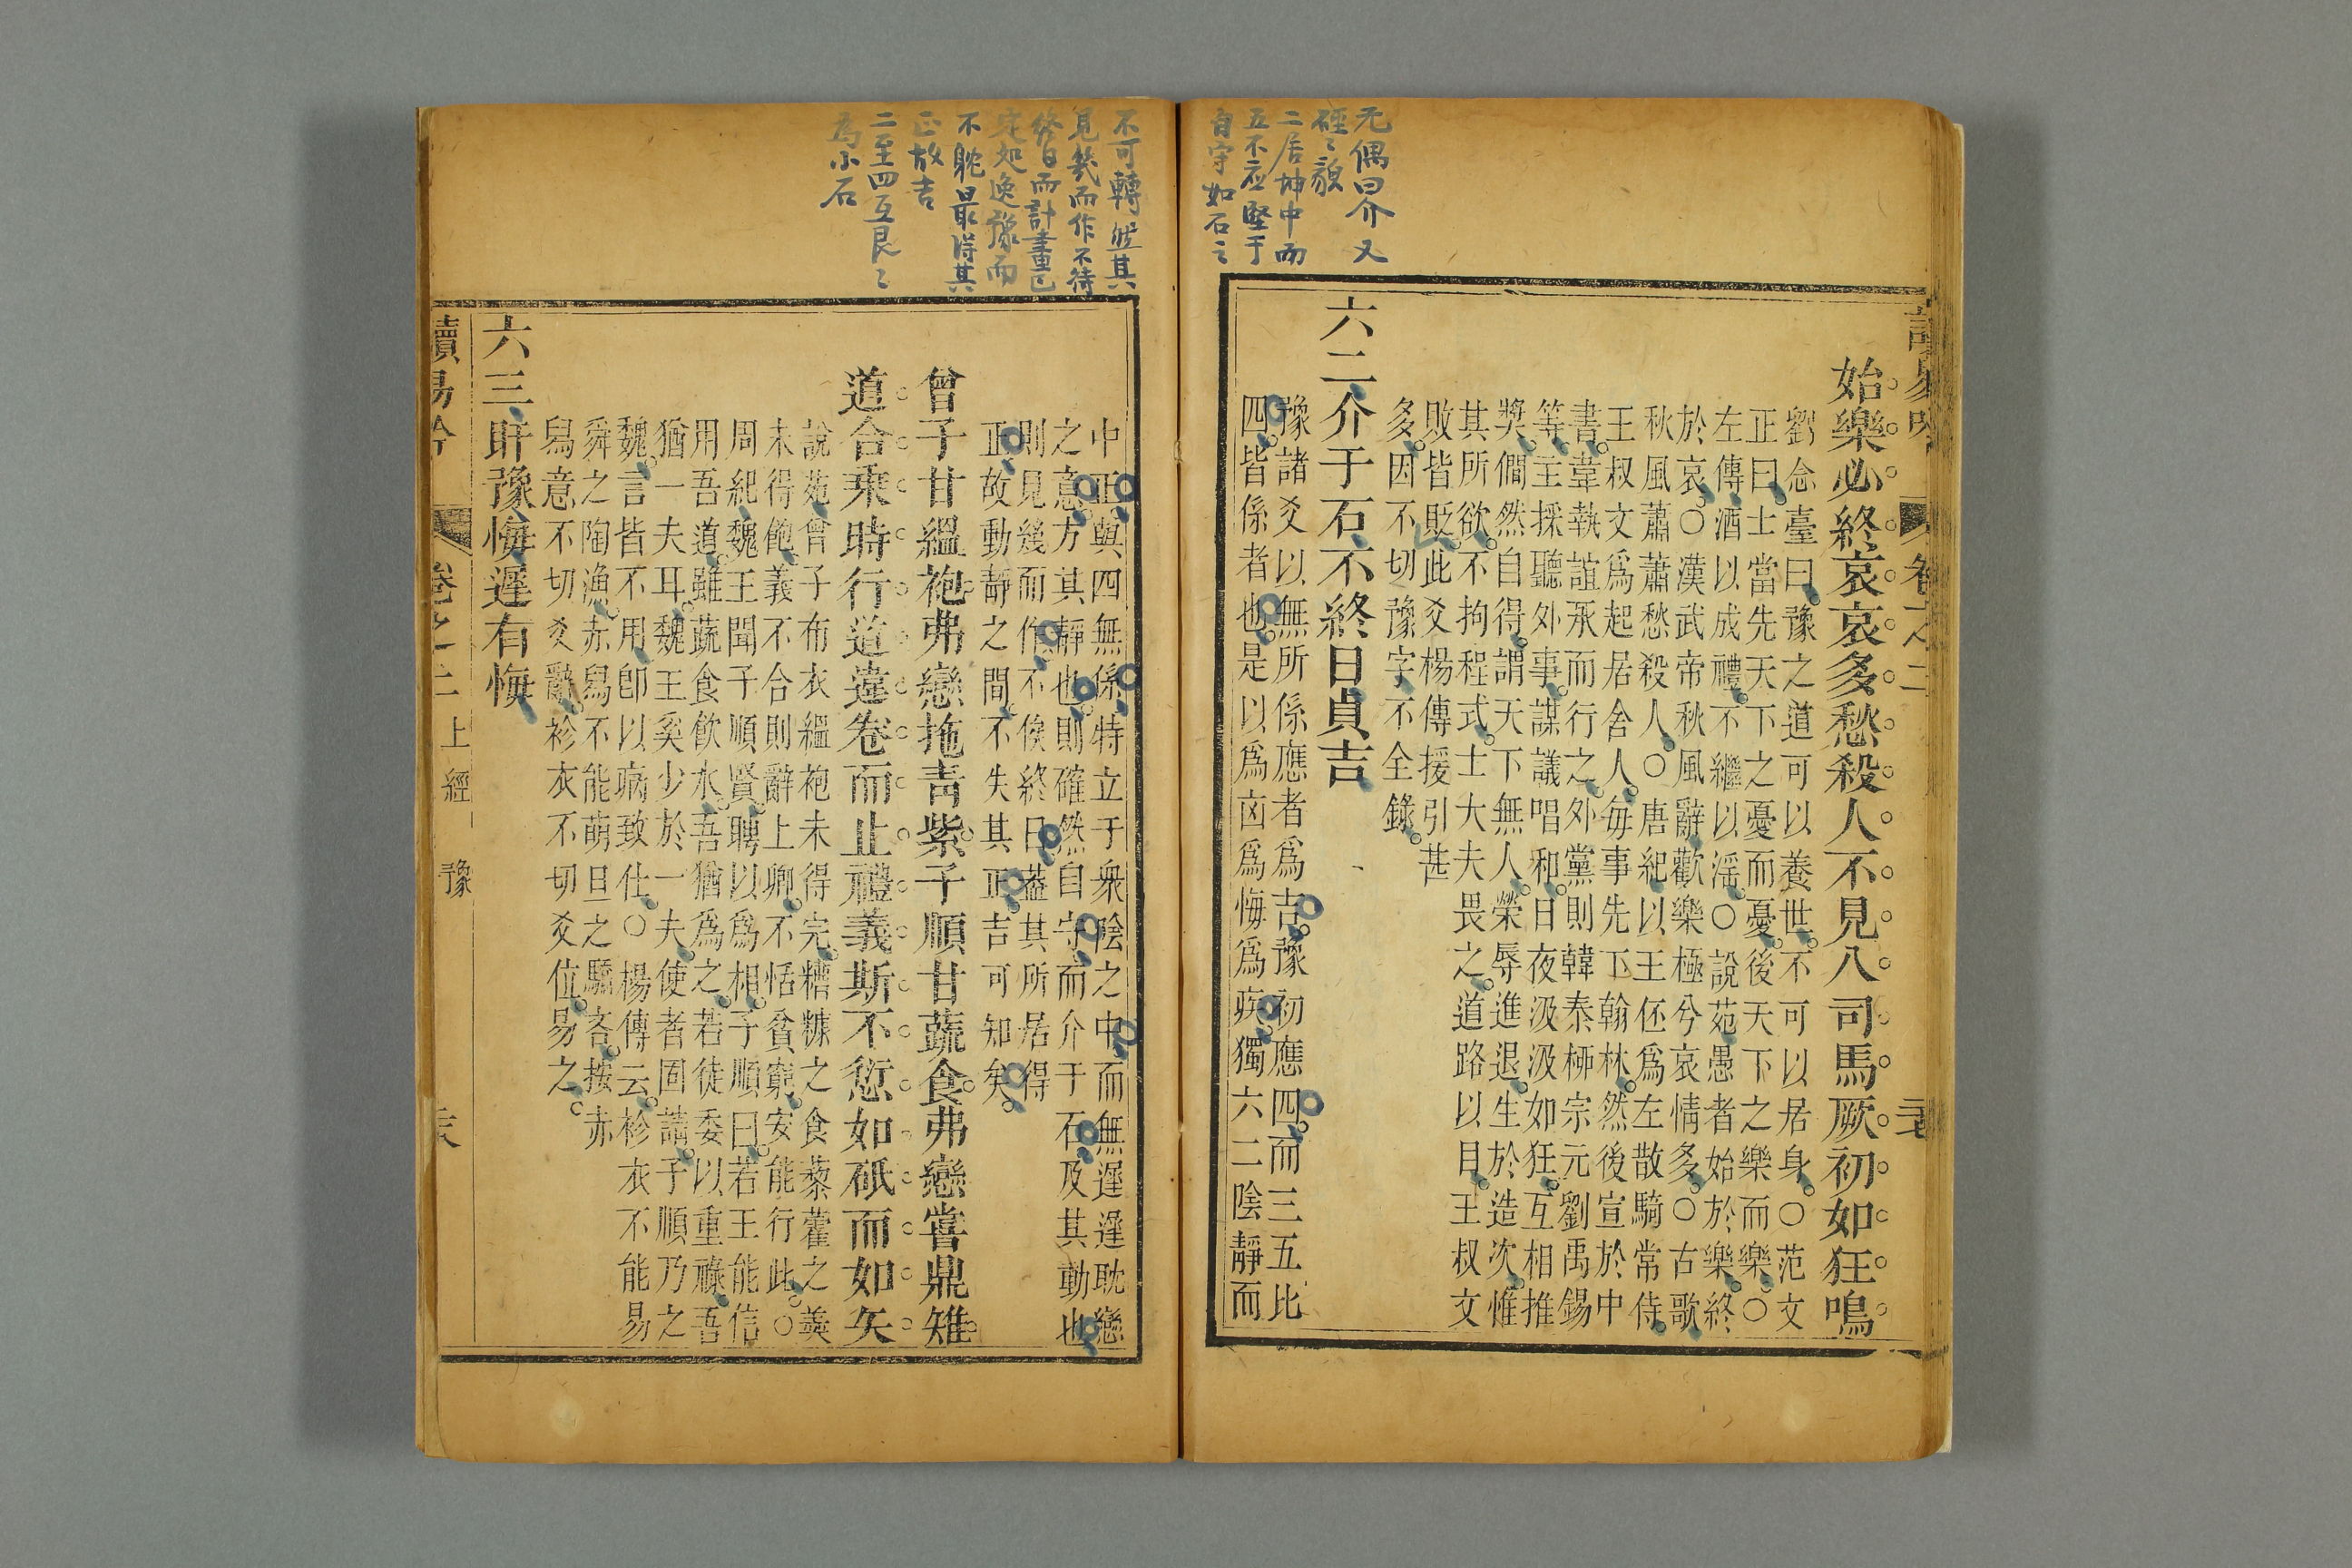 无偶曰介又
硜〻貌
二居坤中而
五不应堅于
自守如石之
始樂必終哀哀多愁殺人不見八司馬厥初如狂鳴
劉念臺曰豫之道可以養世不可以居身〇范文
正曰士當先天下之憂而憂後天下之樂而樂〇
左傳酒以成禮不繼以淫〇說苑愚者始於樂終
於哀〇漢武帝秋風辭歡樂極兮哀情多〇古歌
秋風蕭蕭愁殺人〇唐紀以王伾爲左散騎常侍
王叔文爲起居舍人每事先下翰林然後宣於中
書韋執誼承而行之外黨則韓泰柳宗元劉禹錫
等主採聽外事謀議唱和日夜汲汲如狂互相推
奬僩然自得謂天下無人榮辱進退生於造次惟
其所欲不拘程式士大夫畏之道路以目王叔文
敗皆貶此爻楊傳援引甚
多因不切豫字不全錄
六二介于石不終日貞吉
豫諸爻以無所係應者爲吉豫初應四而三五比
四皆係者也是以爲凶爲悔爲疾獨六二陰靜而
不可轉然其
見幾而作不待
終日而計畫已
定如逸豫而
不躭最得其
正故吉
二至四互艮〻
為小石
中正與四無係特立于衆陰之中而無遲遲耽戀
之意方其靜也則確然自守而介于石及其動也
則見幾而作不俟終日蓋其所居得
正故動靜之間不失其正吉可知矣
曾子甘縕袍弗戀拖靑紫子順甘蔬食弗戀嘗鼎雉
道合乘時行道違卷而止禮義斯不愆如砥而如矢
說苑曾子布衣縕袍未得完糟糠之食藜藿之羹
未得飽義不合則辭上卿不恬貧窮安能行此〇
周紀魏王聞子順賢聘以爲相子順曰若王能信
用吾道雖蔬食飮水吾猶爲之若徒委以重祿吾
猶一夫耳魏王奚少於一夫使者固請子順乃之
魏言皆不用卽以病致仕〇楊傳云袗衣不能易
舜之陶漁赤舄不能萌旦之驕吝按赤
舄意不切爻辭袗衣不切爻位易之
六三盱豫悔遲有悔
上經
豫